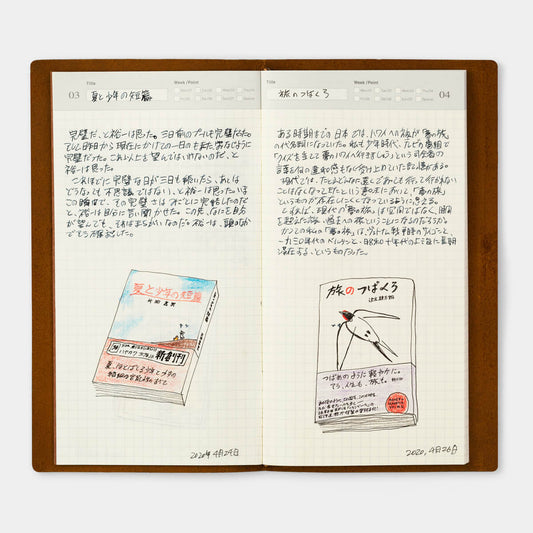 03
Title
夏と少年の短篇
Week / Point
完璧だ、と裕一は思った。三日前のプールも完璧だった。
そして昨日から現在にかけての一日もまた、
完璧だった。これ以上を望んではいけないのだ、と
裕一は思った。
これほどに完璧な日が三日も続いたら、あとは
どうなっても不思議ではない、と裕一は思った。いま
この瞬間で、その完璧さはみごとに完結したのだ
と、裕一は自分に言い聞かせた。この先、なにを自分
が望んでも、それはまちがいなのだと裕一は、頭のなか
でそう確認した。
夏と少年の短篇
片岡義男
ハヤカワ文庫
新創刊
2020年4月29日
Title
旅のつばくろ
Week / Point
04
ある時期までの日本では、ハワイへの旅が「夢の旅」
の代名詞になっていた。私も少年時代、テレビの番組で
「クイズを当てて夢のハワイへ行きましょう」という司会者の
言葉を何の違和感もなく受け止めていた記憶がある。
現代では、たとえどんなに遠くであっても行って行かれない
ことはなくなってきたという意味において、「夢の旅」
というものが存在しにくくなっているように思える。
とすれば、現代の「夢の旅」は空間ではなく、時間
を超えた旅、過去への旅ということになるのだろうか。
かつての私の「夢の旅」は、ヴェトナム戦争時のサイゴンと、
一九三〇年代のベルリンと、昭和十年代の上海に長期
滞在する、というものだった。
旅のつばくろ
沢木耕太郎
つばめのように軽やかに。
人生も、旅も。
2020, 4月26日